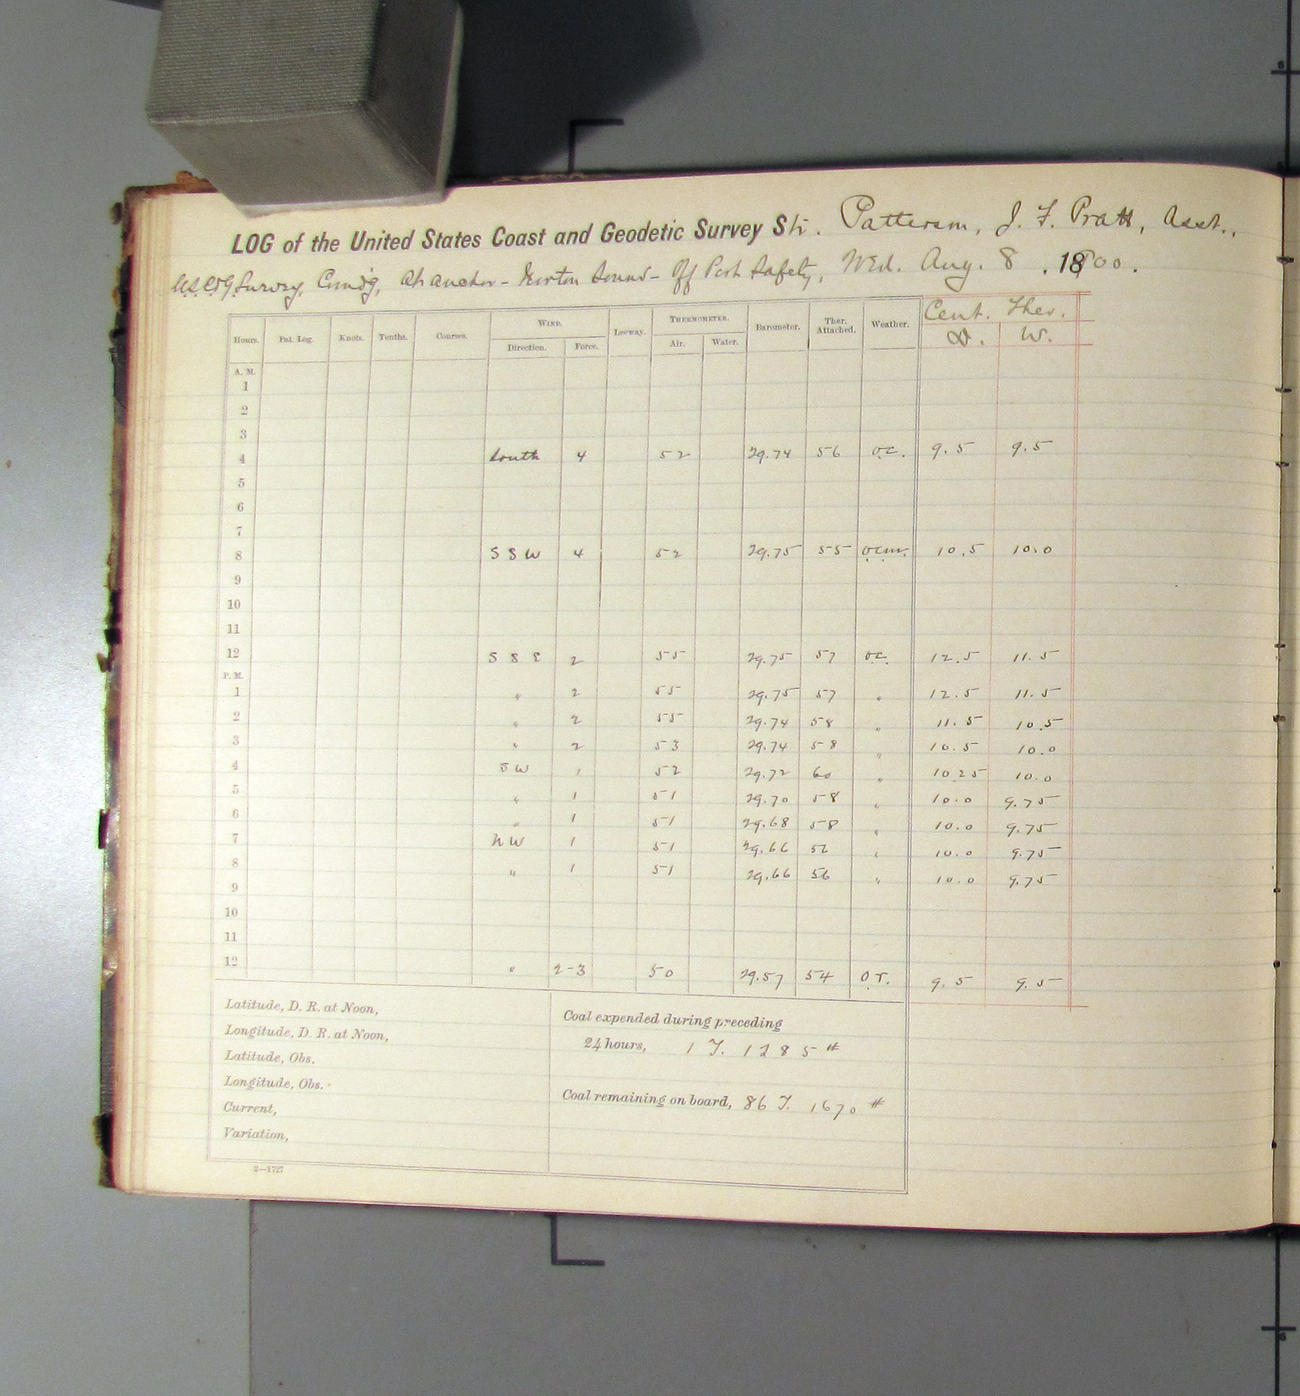 LOG of the United States Coast and Geodetic Survey Str. Patterson, J. F. Pratt, Asst.,
U.S.C&G. Survey, Comd'g, At anchor - Norton Sound - Off Port Safety, Wed. Aug. 8, 1900.
Hours. Pat. Log. Knots. Tenths. Courses. WIND. Leeway. THERMOMETER. Barometer. Ther. Attached. Weather. Cent. Ther.
Direction. Force. Air. Water. D. W.
A. M.
1
2
3
4 South 4 52 29.74 56 oc. 9.5 9.5
5
6
7
8 SSW 4 52 29.75 55 ocm. 10.5 10.0
9
10
11
12 SSE 2 55 29.75 57 oc. 12.5 11.5
P. M.
1 " 2 55 29.75 57 " 12.5 11.5
2 " 2 55 29.74 58 " 11.5 10.5
3 " 2 53 29.74 58 " 10.5 10.0
4 SW 1 52 29.72 60 " 10.25 10.0
5 " 1 51 29.70 58 " 10.0 9.75
6 " 1 51 29.68 58 " 10.0 9.75
7 NW 1 51 29.66 52 " 10.0 9.75
8 " 1 51 29.66 56 " 10.0 9.75
9
10
11
12 " 2-3 50 29.57 54 O.r. 9.5 9.5
Latitude, D. R. at Noon,
Longitude, D. R. at Noon,
Latitude, Obs.
Longitude, Obs.
Current,
Variation,
Coal expended during preceding
24 hours, 1 T. 1285 #
Coal remaining on board, 86 T. 1670 #
2—1727